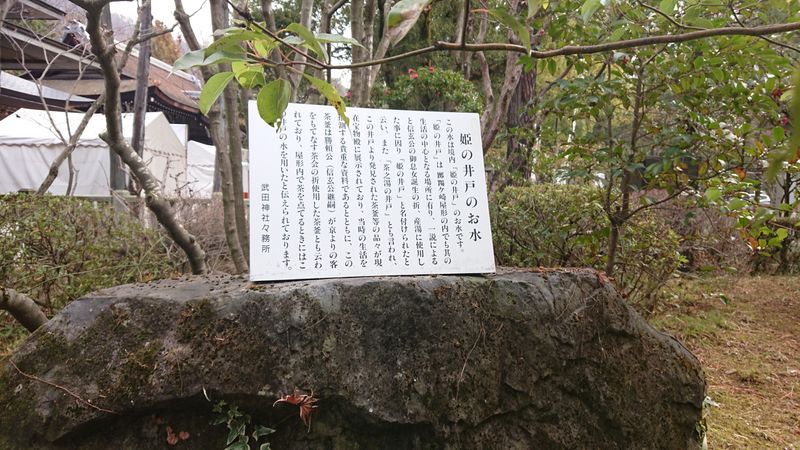 姫の井戸のお水
この水は境内「姫の井戸」のお水です。
「姫の井戸」は、躑躅ヶ崎屋形の内でも其の
生活の中心となる場所に有り、一説による
と信玄公の御息女誕生の折、産湯に使用し
た事に因り「姫の井戸」と名付けられたと
云い、また「茶之湯の井戸」とも言われ、
この井戸より発見された茶釜等の品々が現
在宝物殿に展示されており、当時の生活を
する貴重な資料であるとともに、この
茶釜は勝頼公(信玄公継嗣)が京よりの客
をもてなす茶会の折使用した茶釜とも云わ
れており、屋形内で茶を点てるときにはこ
井戸の水を用いたと伝えられております。
武田神社々務所